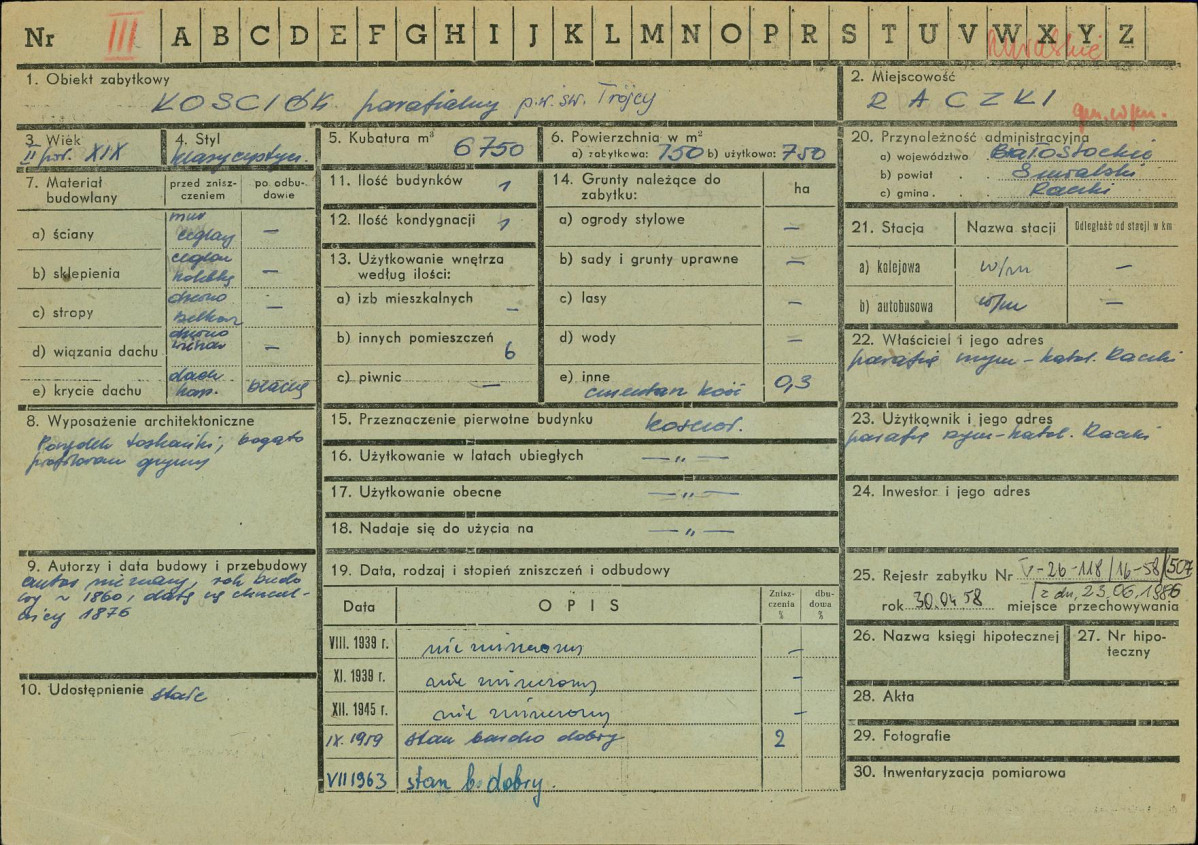 Nr III A B C D E F G H I J K L M N O P R S T U V W X Y Z
1. Obiekt zabytkowy
KOSCIÓŁ parafialny p.w. św. Trójcy
2. Miejscowość
RACZKI
3. Wiek
II poł. XIX
4. Styl
klasycystycz.
5. Kubatura m³ 6750
6. Powierzchnia w m²
a) zabytkowa: 750 b) użytkowa: 750
7. Materiał budowlany
przed zniszczeniem
po odbudowie
a) ściany
mur ceglany —
b) sklepienia
ceglane kolebka —
c) stropy
drewno belkow —
d) wiązania dachu
drewno —
e) krycie dachu
dach. blachą
8. Wyposażenie architektoniczne
Porządek toskański, bogato
profilowane gzymsy
9. Autorzy i data budowy i przebudowy
autor nieznany, rok budo
wy ~ 1860,
1876
10. Udostępnienie stałe
11. Ilość budynków 1
12. Ilość kondygnacji 1
13. Użytkowanie wnętrza
według ilości:
a) izb mieszkalnych —
b) innych pomieszczeń 6
c) piwnic —
14. Grunty należące do
zabytku: ha
a) ogrody stylowe —
b) sady i grunty uprawne —
c) lasy —
d) wody —
e) inne
cmentarz kość 0,3
15. Przeznaczenie pierwotne budynku kościoł.
16. Użytkowanie w latach ubiegłych — „ —
17. Użytkowanie obecne — „ —
18. Nadaje się do użycia na — „ —
19. Data, rodzaj i stopień zniszczeń i odbudowy
Data OPIS Zniszczenia % dbudowa %
VIII. 1939 r. nie zniszczony —
XI. 1939 r. nie zniszczony —
XII. 1945 r. nie zniszczony —
IX. 1959 stan bardzo dobry 2
VII 1963 stan b. dobry.
20. Przynależność administracyjna
a) województwo Białostockie
b) powiat Suwalski
c) gmina Raczki
21. Stacja Nazwa stacji Odległość od stacji w km
a) kolejowa w/m —
b) autobusowa w/m —
22. Właściciel i jego adres
parafia rzym-katol. Raczki
23. Użytkownik i jego adres
parafia rzym-katol. Raczki
24. Inwestor i jego adres
25. Rejestr zabytku Nr V-26-118/16-58/507
z dn. 23.06.1986
rok 30.04.58 miejsce przechowywania
26. Nazwa księgi hipotecznej
27. Nr hipoteczny
28. Akta
29. Fotografie
30. Inwentaryzacja pomiarowa